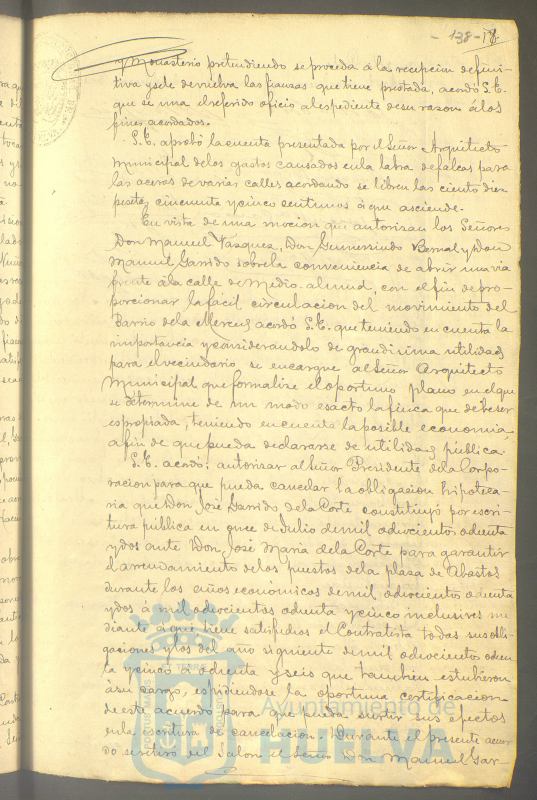 - 138 -
y Monasterio pretendiendo se proceda á la recepcion defini-
tiva y se le devuelva las fianzas que tiene prestada, acordó S.E.
que se una el referido oficio al espediente de su razon á los
fines acordados.
S.E. aprobó la cuenta presentada por el Señor Arquitecto
Municipal de los gastos causados en la labra de falcas para
las aceras de varias calles acordando se libren las ciento diez
pesetas cincuenta y cinco centimos á que asciende.
En vista de una mocion que autorizan los Señores
Don Manuel Vazquez, Don Gumersindo Bernal y Don
Manuel Garrido sobre la conveniencia de abrir una via
frente á la calle de Medio almud, con el fin de pro-
porcionar la facil circulacion del movimiento del
Barrio de la Merced, acordó S.E. que teniendo en cuenta la
importancia y considerandolo de grandisima utilidad
para el vecindario se encargue al Señor Arquitecto
Municipal que formalize el oportuno plano en el que
se determine de un modo exacto la finca que debe ser
espropiada, teniendo en cuenta la posible economia,
a fin de que pueda declararse de utilidad pública.
S.E. acordó: autorizar al Señor Presidente de la Corpo-
racion para que pueda cancelar la obligacion hipoteca-
ria que Don José Garrido de la Corte constituyó por escri-
tura publica en once de Julio de mil ochocientos ochenta
y dos ante Don José Maria de la Corte para garantir
el arrendamiento de los puestos de la plaza de Abastos
durante los años economicos de mil ochocientos ochenta
y dos á mil ochocientos ochenta y cinco inclusives me
diante á que tiene satisfechos el Contratista todas sus obli-
gaciones y las del año siguiente de mil ochocientos ochen
ta y cinco á ochenta y seis que tambien estubieron
á su cargo, espidiendose la oportuna certificacion
de este acuerdo para que pueda surtir sus efectos
en la escritura de cancelacion. Durante el presente acuer
do se retiró del Salon el Señor Don Manuel Gar-
Ayuntamiento de
HUELVA